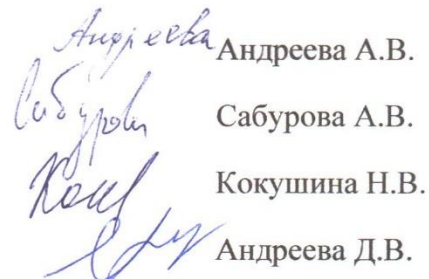 Андреева Андреева А.В.
Сабурова Сабурова А.В.
Кокушина Н.В.
Андреева Д.В.